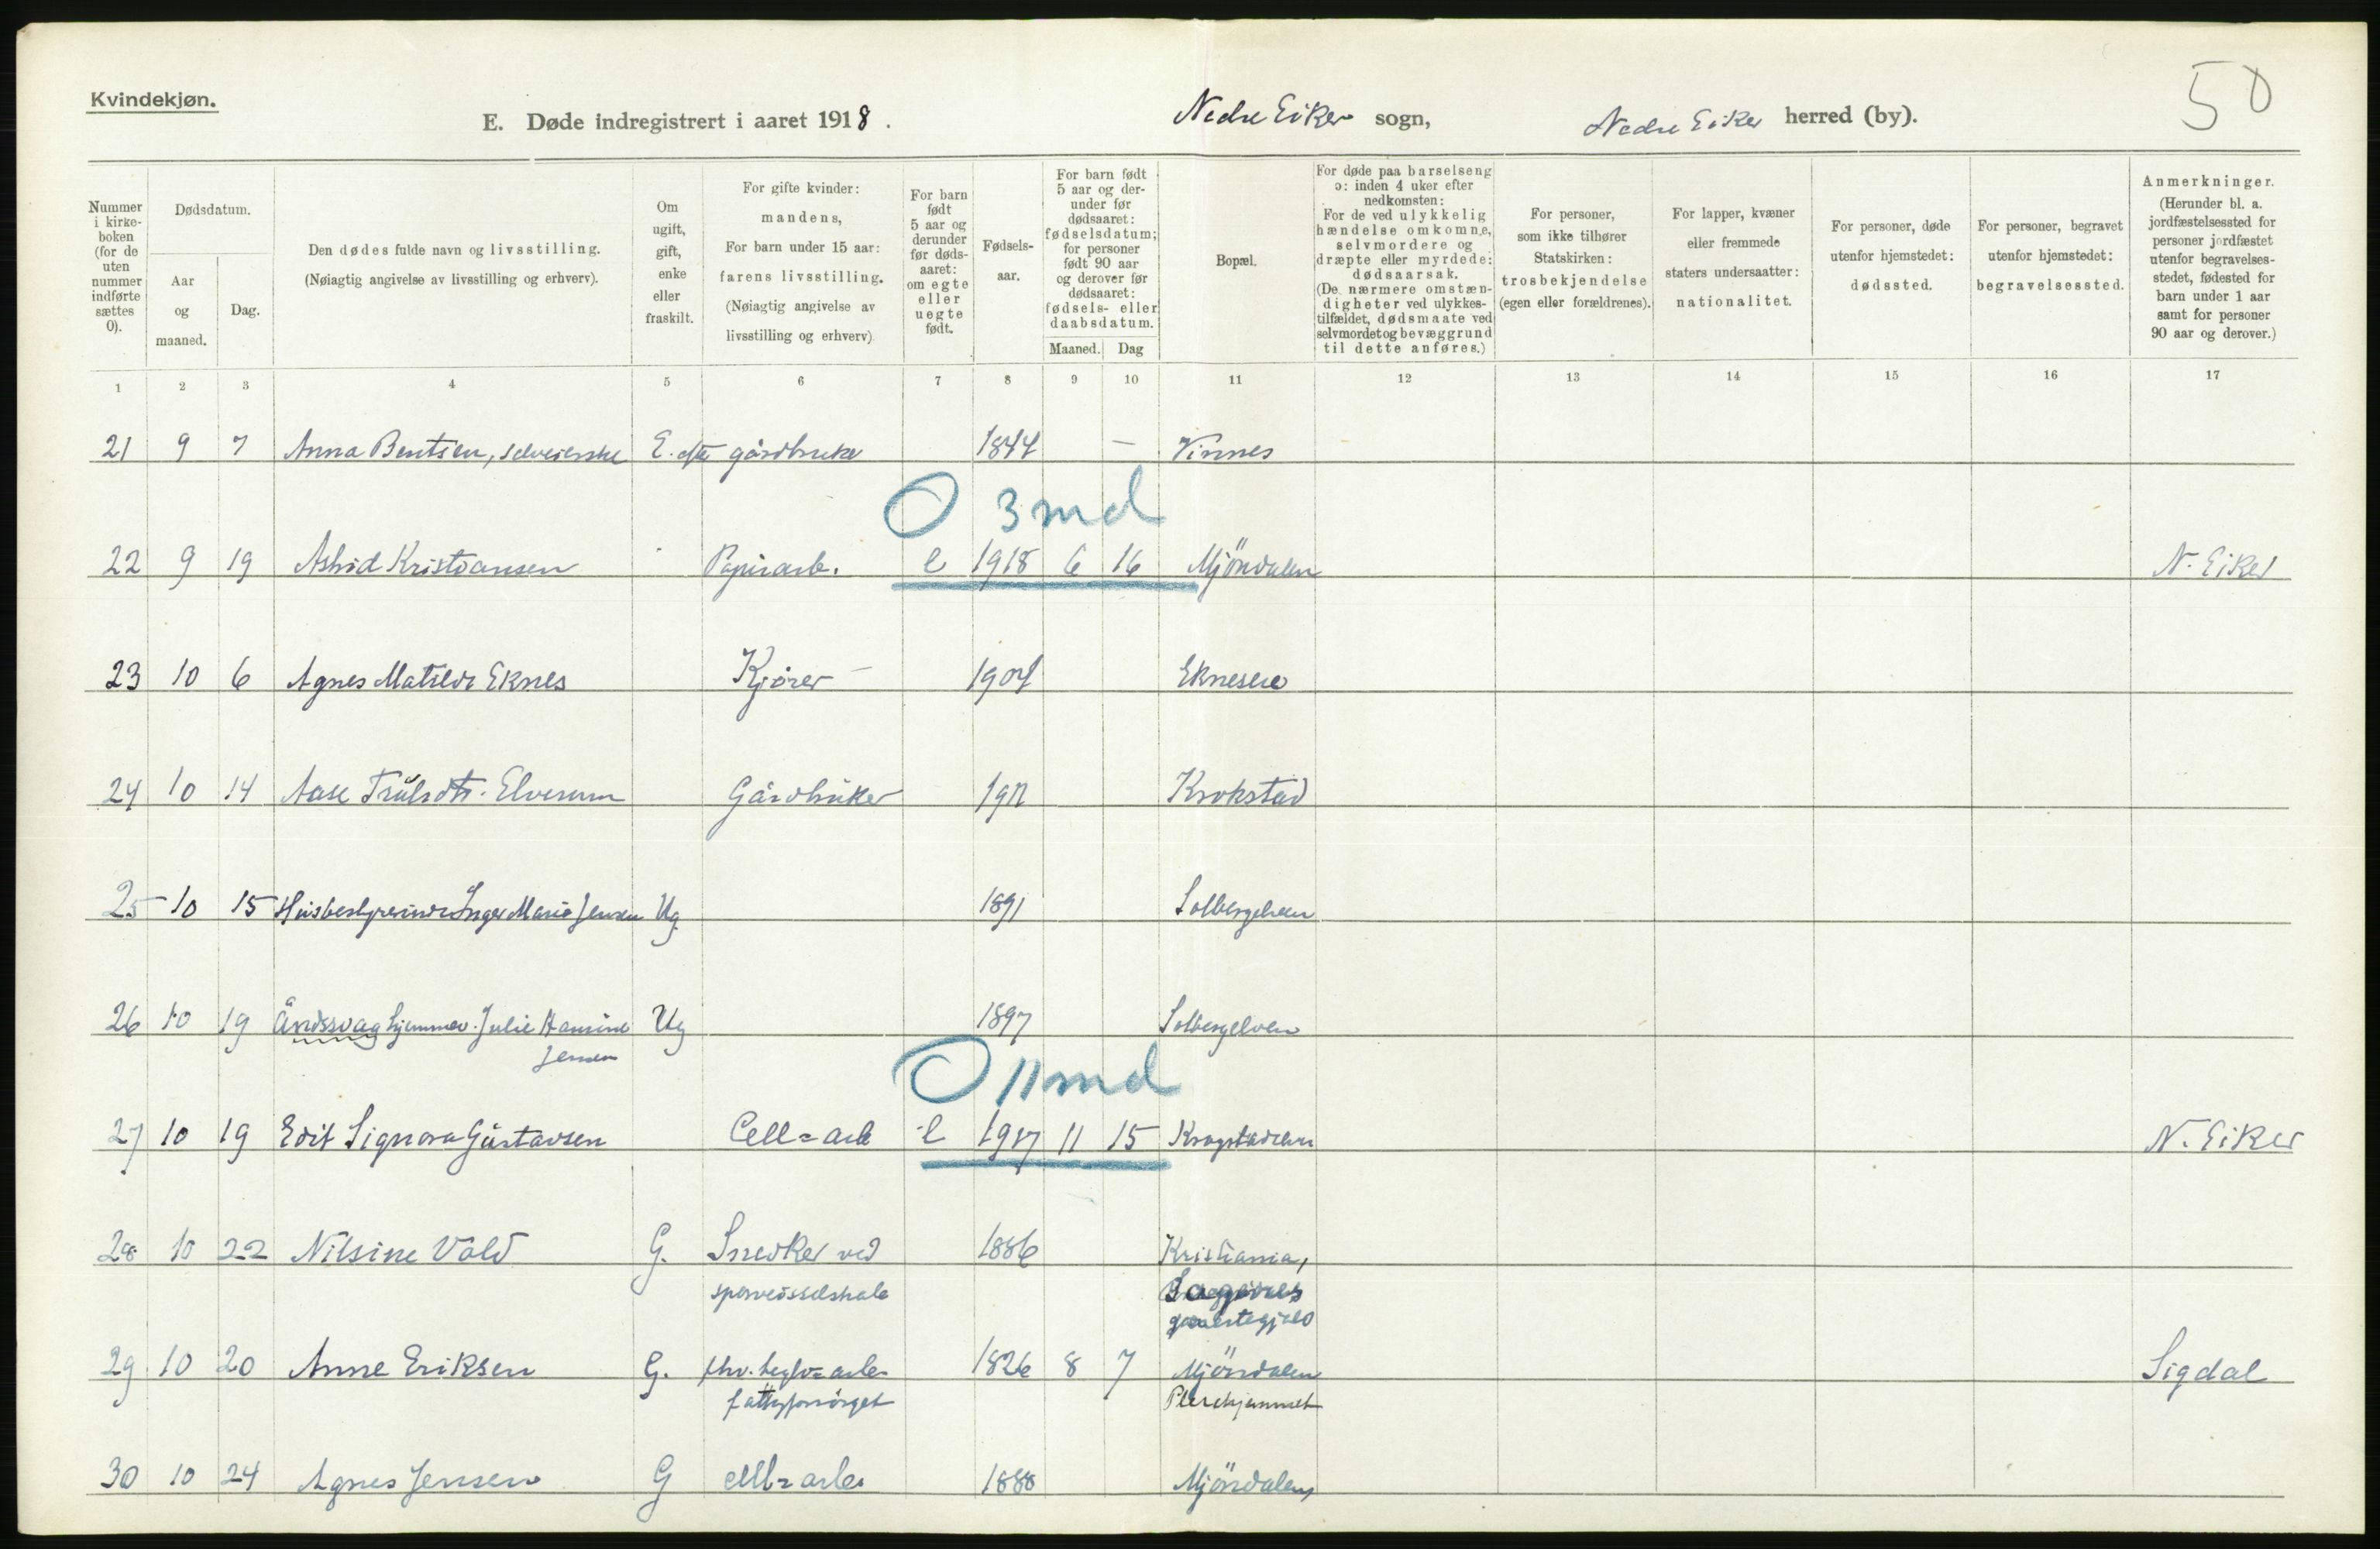 Kvindekjøn.
50
E. Døde indregistrert i aaret 1918.
Nedre Eiker sogn,
Nedre Eiker herred (by).
Nummer i kirkeboken (for de uten nummer indførte sættes 0).
Dødsdatum.
Aar og maaned.
Dag.
Den dødes fulde navn og livsstilling.
(Nøiagtig angivelse av livsstilling og erhverv).
Om ugift, gift, enke eller fraskilt.
For gifte kvinder: mandens,
For barn under 15 aar: farens livsstilling.
(Nøiagtig angivelse av livsstilling og erhverv)
For barn født 5 aar og derunder før dødsaaret: om egte eller uegte født.
Fødselsaar.
For barn født 5 aar og derunder før dødsaaret: fødselsdatum; for personer født 90 aar og derover før dødsaaret: fødsels- eller daabsdatum.
Maaned.
Dag
Bopæl.
For døde paa barselseng ɔ: inden 4 uker efter nedkomsten:
For de ved ulykkelig hændelse omkomne, selvmordere og dræpte eller myrdede: dødsaarsak.
(De nærmere omstændigheter ved ulykkestilfældet, dødsmaate ved selvmordet og bevæggrund til dette anføres.)
For personer, som ikke tilhører Statskirken: trosbekjendelse (egen eller forældrenes).
For lapper, kvæner eller fremmede staters undersaatter: nationalitet.
For personer, døde utenfor hjemstedet: dødssted.
For personer, begravet utenfor hjemstedet: begravelsessted.
Anmerkninger.
(Herunder bl. a. jordfæstelsessted for personer jordfæstet utenfor begravelsesstedet, fødested for barn under 1 aar samt for personer 90 aar og derover.)
1 2 3 4 5 6 7 8 9 10 11 12 13 14 15 16 17
21 9 7 Anna Bentsen, selveierske E. efter gårdbruker 1844 — Vinnes
O 3 md
22 9 19 Astrid Kristiansen Papirarb. e 1918 6 16 Mjöndalen N. Eiker
23 10 6 Agnes Matilde Eknes Kjører 1904 Eknesere
24 10 14 Aase Trulsdtr. Elverum Gårdbruker 1912 Krokstad
25 10 15 Husbestyrerinde Inger Marie Jensen Ug. 1891 Solbergelven
26 10 19 Åndssvag hjemmev. Julie Hansine Ug 1897 Solbergelven
Jensen
O 11 md
27 10 19 Edit Signora Gustavsen Cell=arb e 1917 11 15 Krogstadelven N. Eiker
28 10 22 Nilsine Vold G. Snedker ved 1886 Kristiania,
sporveisselskab
29 10 20 Anne Eriksen G. fhv. teglv=arb. 1826 8 7 Mjöndalen Sigdal
fattigforsørget Pleiehjemmet
30 10 24 Agnes Jensen G cell=arb. 1888 Mjöndalen